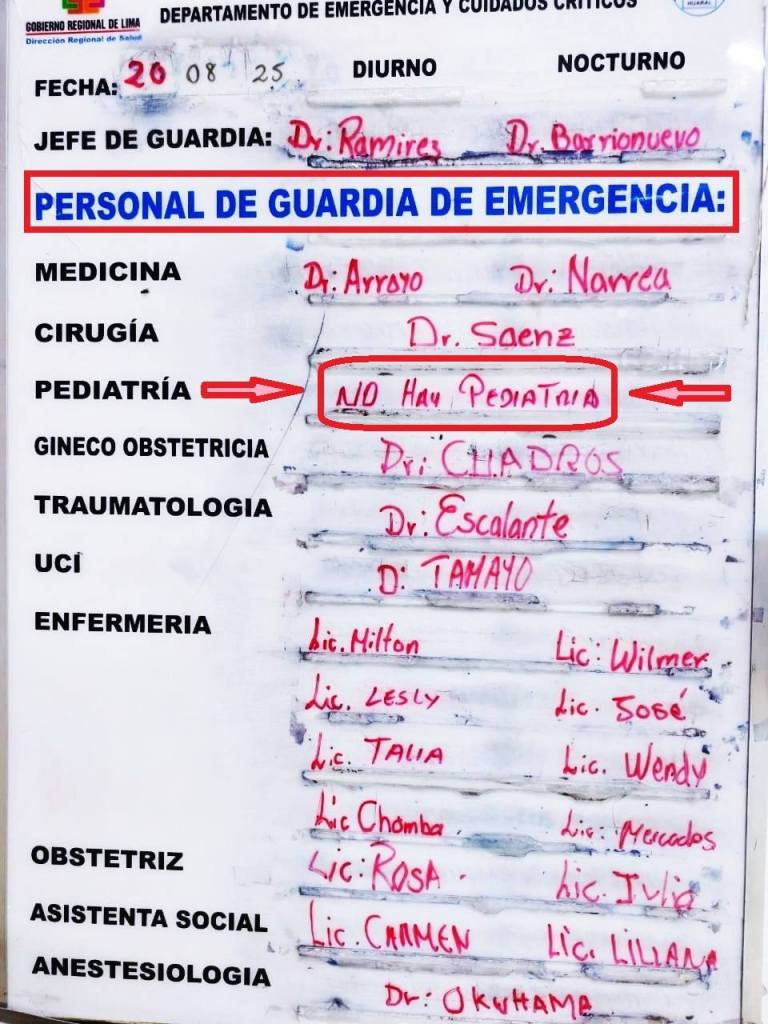 GOBIERNO REGIONAL DE LIMA
Dirección Regional de Salud
DEPARTAMENTO DE EMERGENCIA Y CUIDADOS CRITICOS
HUARAL
FECHA: 20 08 25 DIURNO NOCTURNO
JEFE DE GUARDIA: Dr: Ramires Dr. Barrionuevo
PERSONAL DE GUARDIA DE EMERGENCIA:
MEDICINA Dr: Arroyo Dr: Narrea
CIRUGÍA Dr. Saenz
PEDIATRÍA NO HAY PEDIATRIA
GINECO OBSTETRICIA Dr: CUADROS
TRAUMATOLOGIA Dr: Escalante
UCÍ D: TAMAYO
ENFERMERIA Lic. Milton Lic: Wilmer
Lic. LESLY Lic. José
Lic. TALIA Lic. Wendy
Lic Chomba Lic: Mercados
OBSTETRIZ Lic: ROSA. Lic. Julia
ASISTENTA SOCIAL Lic. CARMEN Lic. LILIANA
ANESTESIOLOGIA Dr: OKUHAMA